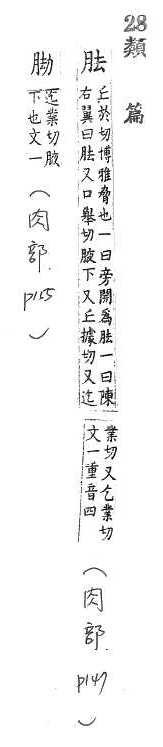 28類篇
胠
丘於切博雅脅也一曰旁開為胠一曰陳
右翼曰胠又口舉切腋下又丘據切又迄
業切又乞業切
文一重音四
（肉部 p147）
胁
迄業切腋
下也文一
（肉部 p155）